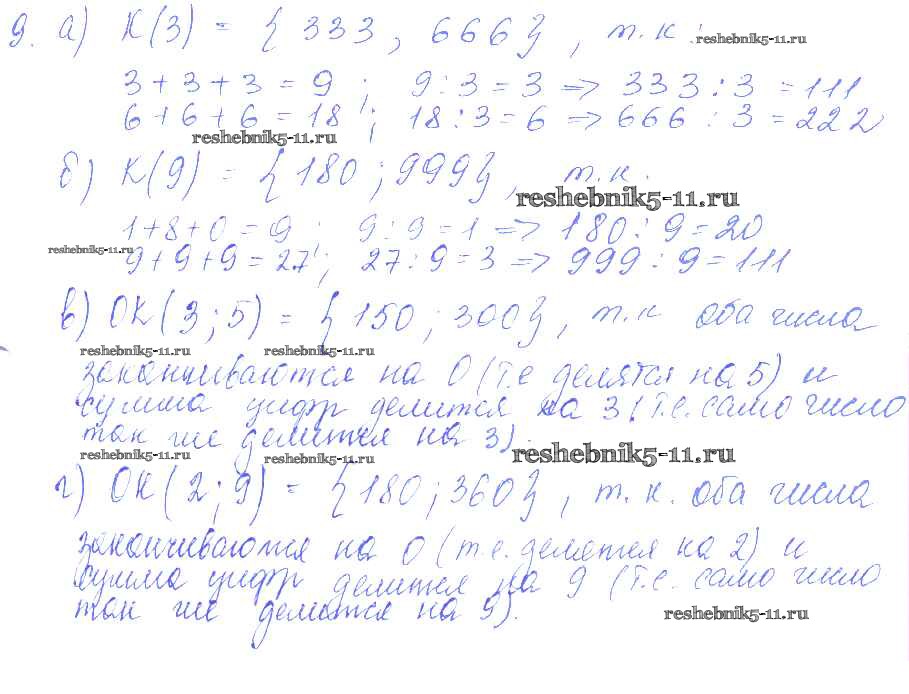 9. а) К(3) = { 333, 666}, т.к.
reshebnik5-11.ru
3+3+3=9; 9:3=3 => 333:3=111
6+6+6=18; 18:3=6 => 666:3=222
reshebnik5-11.ru
б) К(9) = { 180; 999}, т.к.
reshebnik5-11.ru
1+8+0=9; 9:9=1 => 180:9=20
reshebnik5-11.ru
9+9+9=27; 27:9=3 => 999:9=111
в) ОК(3;5) = { 150; 300}, т.к оба числа
reshebnik5-11.ru reshebnik5-11.ru
заканчиваются на 0 (т.е делятся на 5) и
сумма цифр делится на 3 (т.е. само число
так же делится на 3).
reshebnik5-11.ru reshebnik5-11.ru reshebnik5-11.ru
г) ОК(2;9) = { 180; 360}, т.к. оба числа
заканчиваются на 0 (т.е. делятся на 2) и
сумма цифр делится на 9 (т.е. само число
так же делится на 9).
reshebnik5-11.ru